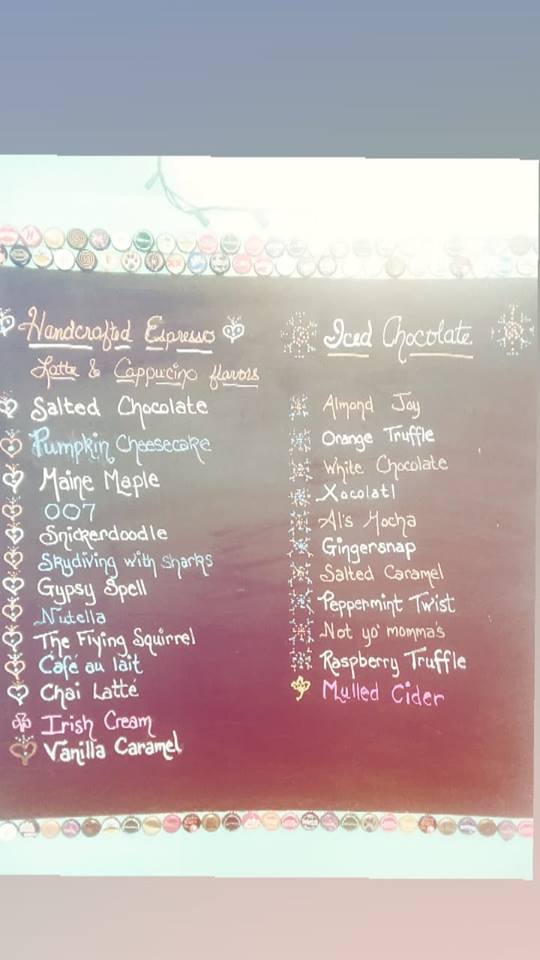 Handcrafted Espresso
Latte & Cappucino flavors
Salted Chocolate
Pumpkin Cheesecake
Maine Maple
007
Snickerdoodle
Skydiving with sharks
Gypsy Spell
Nutella
The Flying Squirrel
Café au lait
Chai Latté
Irish Cream
Vanilla Caramel
Iced Chocolate
Almond Joy
Orange Truffle
White Chocolate
Xocolatl
Al's Mocha
Gingersnap
Salted Caramel
Peppermint Twist
Not yo' momma's
Raspberry Truffle
Mulled Cider